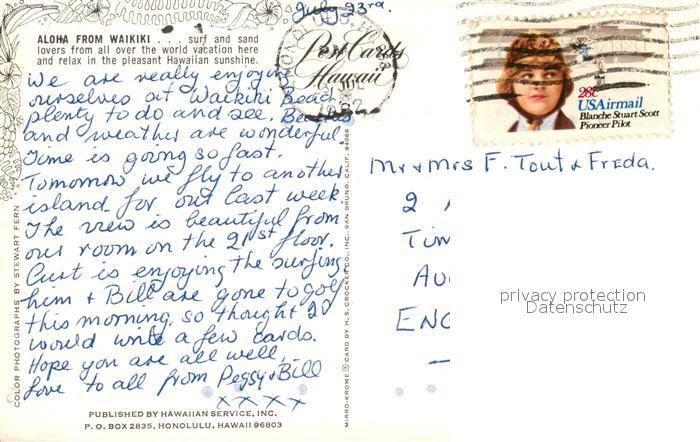 July 23rd.
ALOHA FROM WAIKIKI . . . . surf and sand
lovers from all over the world vacation here
and relax in the pleasant Hawaiian sunshine.
Post Cards
Hawaii
HONOLULU
JUL
1982
28c
USAirmail
Blanche Stuart Scott
Pioneer Pilot
We are really enjoying
ourselves at Waikiki Beach
plenty to do and see. Beaches
and weather are wonderful.
Time is going so fast.
Tomorrow we fly to another
island for our last week.
The view is beautiful from
our room on the 21st floor.
Curt is enjoying the surfing
him + Bill are gone to golf
this morning, so thought I'd
would write a few cards.
Hope you are all well,
Love to all from Peggy & Bill
xxxx
Mr & Mrs F. Tout & Freda.
2
TIN
AU
ENG
privacy protection
Datenschutz
COLOR PHOTOGRAPHS BY STEWART FERN
MIRRO-KROME ® CARD BY H. S. CROCKER CO., INC. SAN BRUNO, CALIF. 94066
PUBLISHED BY HAWAIIAN SERVICE, INC.
P. O. BOX 2835, HONOLULU, HAWAII 96803